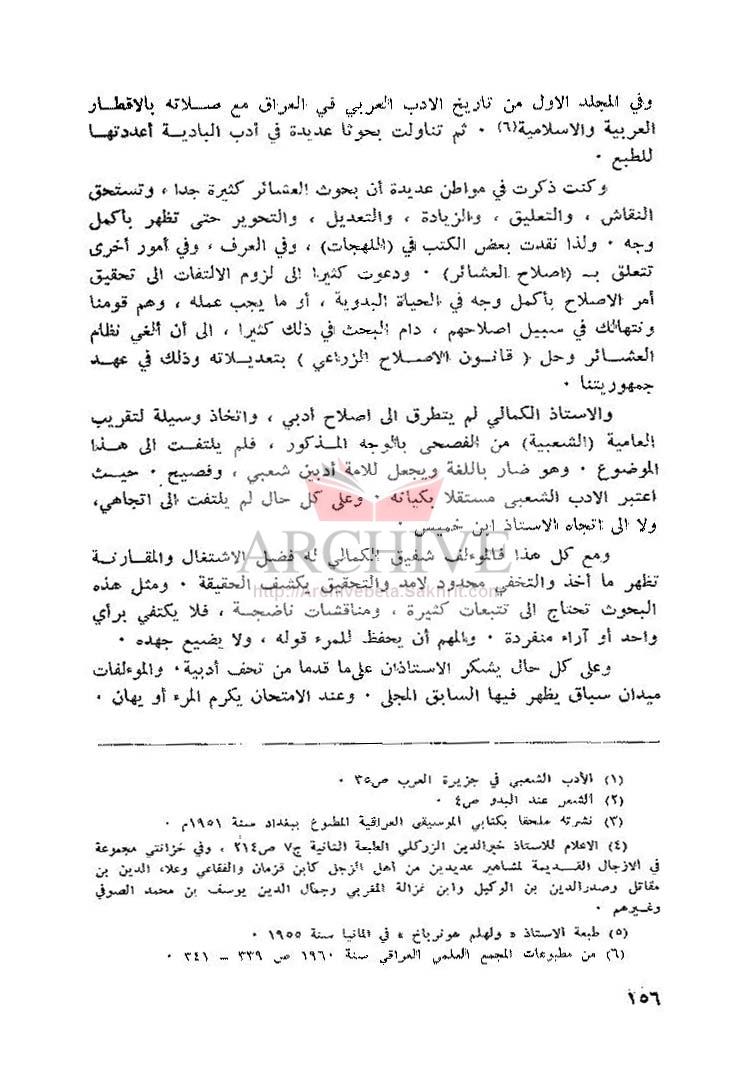 وفي المجلد الاول من تاريخ الادب العربي في العراق مع صلاته بالاقطار
العربية والاسلامية(٦) ٠ ثم تناولت بحوثا عديدة في أدب البادية أعددتها
للطبع ٠
وكنت ذكرت في مواطن عديدة أن بحوث العشائر كثيرة جدا ، وتستحق
النقاش ، والتعليق ، والزيادة ، والتعديل ، والتحوير حتى تظهر بأكمل
وجه ٠ ولذا نقدت بعض الكتب في (اللهجات) ، وفي العرف ، وفي أمور أخرى
تتعلق بـ (اصلاح العشائر) ٠ ودعوت كثيرا الى لزوم الالتفات الى تحقيق
أمر الاصلاح بأكمل وجه في الحياة البدوية ، أو ما يجب عمله ، وهم قومنا
ونتهالك في سبيل اصلاحهم ، دام البحث في ذلك كثيرا ، الى أن ألغي نظام
العشائر وحل ( قانون الاصلاح الزراعي ) بتعديلاته وذلك في عهد
جمهوريتنا ٠
والاستاذ الكمالي لم يتطرق الى اصلاح أدبي ، واتخاذ وسيلة لتقريب
العامية (الشعبية) من الفصحى بالوجه المذكور ، فلم يلتفت الى هذا
الموضوع ٠ وهو ضار باللغة ويجعل للامة أدبين شعبي ، وفصيح ٠ حيث
اعتبر الادب الشعبي مستقلا بكيانه ٠ وعلى كل حال لم يلتفت الى اتجاهي،
ولا الى اتجاه الاستاذ ابن خميس ٠
ARCHIVE
ومع كل هذا فالموءلف شفيق الكمالي له فضل الاشتغال والمقارنة
تظهر ما أخذ والتخفي محدود لامد والتحقيق يكشف الحقيقة ٠ ومثل هذه
http://Archivebeta.Sakhrit.com
البحوث تحتاج الى تتبعات كثيرة ، ومناقشات ناضجة ، فلا يكتفي برأي
واحد أو آراء منفردة ٠ والمهم أن يحفظ للمرء قوله ، ولا يضيع جهده ٠
وعلى كل حال يشكر الاستاذان على ما قدما من تحف أدبية٠ والموءلفات
ميدان سباق يظهر فيها السابق المجلى ٠ وعند الامتحان يكرم المرء أو يهان ٠
(١) الأدب الشعبي في جزيرة العرب ص٣٥ ٠
(٢) الشعر عند البدو ص٤ ٠
(٣) نشرته ملحقا بكتابي الموسيقى العراقية المطبوع ببغداد سنة ١٩٥١م ٠
(٤) الاعلام للاستاذ خيرالدين الزركلي الطبعة الثانية ج٧ ص٢١٤ ، وفي خزانتي مجموعة
في الازجال القديمة لمشاهير عديدين من أهل الزجل كابن قزمان والفقاعي وعلاء الدين بن
مقاتل وصدرالدين بن الوكيل وابن غزالة المغربي وجمال الدين يوسف بن محمد الصوفي
وغيرهم ٠
(٥) طبعة الاستاذ « ولهلم هونرباخ » في المانيا سنة ١٩٥٥ ٠
(٦) من مطبوعات المجمع العلمي العراقي سنة ١٩٦٠ ص ٣٣٩ – ٣٤١ ٠
١٥٦